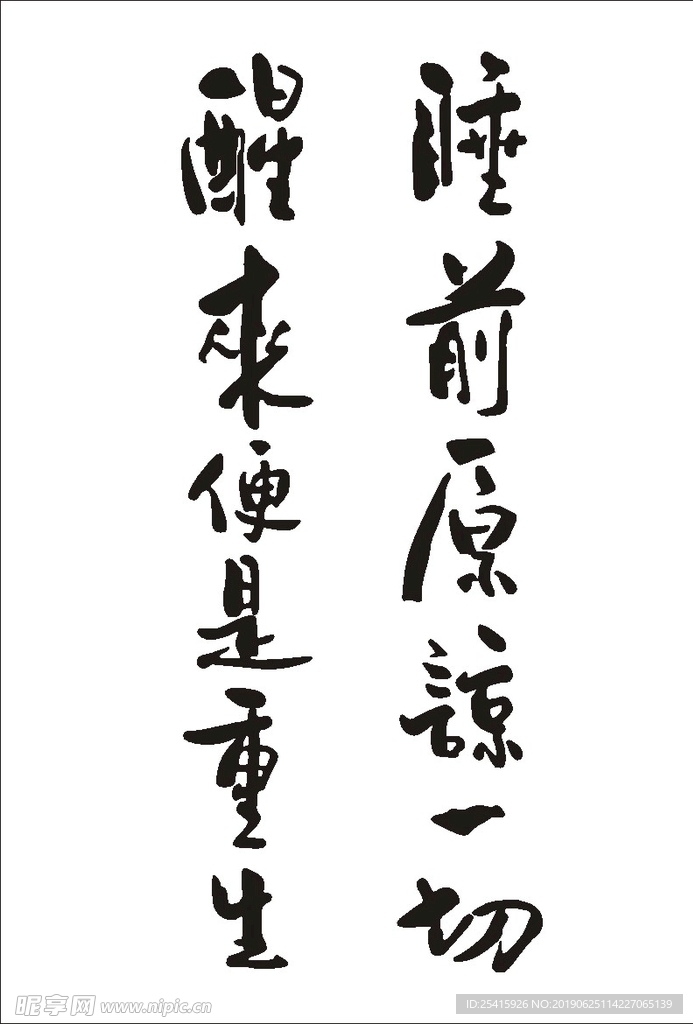 睡前原諒一切
醒來便是重生
昵享网 www.nipic.cn
ID:25415926 NO:20190625114227065139